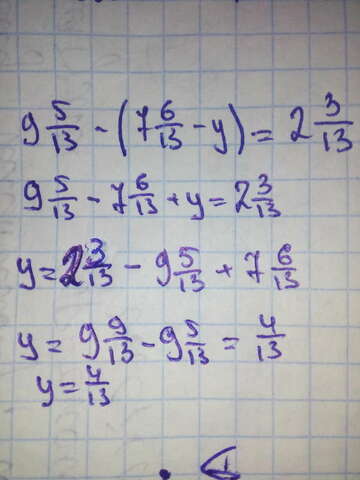 9 5/13 - (7 6/13 - y) = 2 3/13
9 5/13 - 7 6/13 + y = 2 3/13
y = 2 3/13 - 9 5/13 + 7 6/13
y = 9 9/13 - 9 5/13 = 4/13
y = 4/13